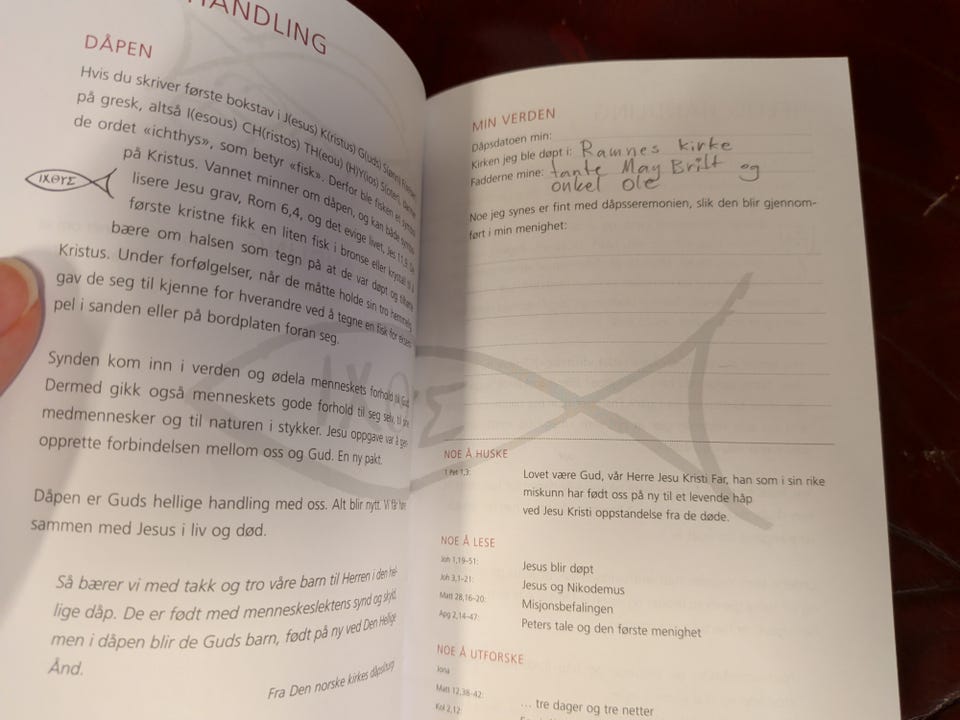 HANDLING
DÅPEN
Hvis du skriver første bokstav i J(esus) K(ristus) G(uds) S(ønn) F(relser)
på gresk, altså I(esous) CH(ristos) TH(eou) (H)Y(ios) S(oter), danner
de ordet «ichthys», som betyr «fisk». Derfor ble fisken et symbol
på Kristus. Vannet minner om dåpen, og kan både symbo-
lisere Jesu grav, Rom 6,4, og det evige livet, Jes 11,9. De
IXΘYE
første kristne fikk en liten fisk i bronse eller krystall til å
bære om halsen som tegn på at de var døpt og tilhørte
Kristus. Under forfølgelser, når de måtte holde sin tro hemmelig,
gav de seg til kjenne for hverandre ved å tegne en fisk for eksem-
pel i sanden eller på bordplaten foran seg.
Synden kom inn i verden og ødela menneskets forhold til Gud.
Dermed gikk også menneskets gode forhold til seg selv, til sine
medmennesker og til naturen i stykker. Jesu oppgave var å gjen-
opprette forbindelsen mellom oss og Gud. En ny pakt.
Dåpen er Guds hellige handling med oss. Alt blir nytt. Vi får høre
sammen med Jesus i liv og død.
Så bærer vi med takk og tro våre barn til Herren i den hel-
lige dåp. De er født med menneskeslektens synd og skyld,
men i dåpen blir de Guds barn, født på ny ved Den Hellige
Ånd.
Fra Den norske kirkes dåpsliturgi
MIN VERDEN
Dåpsdatoen min:
Kirken jeg ble døpt i: Ramnes kirke
Fadderne mine: tante May Britt og
onkel ole
Noe jeg synes er fint med dåpsseremonien, slik den blir gjennom-
ført i min menighet:
IXΘYE
NOE Å HUSKE
1 Pet 1,3: Lovet være Gud, vår Herre Jesu Kristi Far, han som i sin rike
miskunn har født oss på ny til et levende håp
ved Jesu Kristi oppstandelse fra de døde.
NOE Å LESE
Joh 1,19–51: Jesus blir døpt
Joh 3,1–21: Jesus og Nikodemus
Matt 28,16–20: Misjonsbefalingen
Apg 2,14–47: Peters tale og den første menighet
NOE Å UTFORSKE
Jona
Matt 12,38–42: … tre dager og tre netter
Kol 2,12: